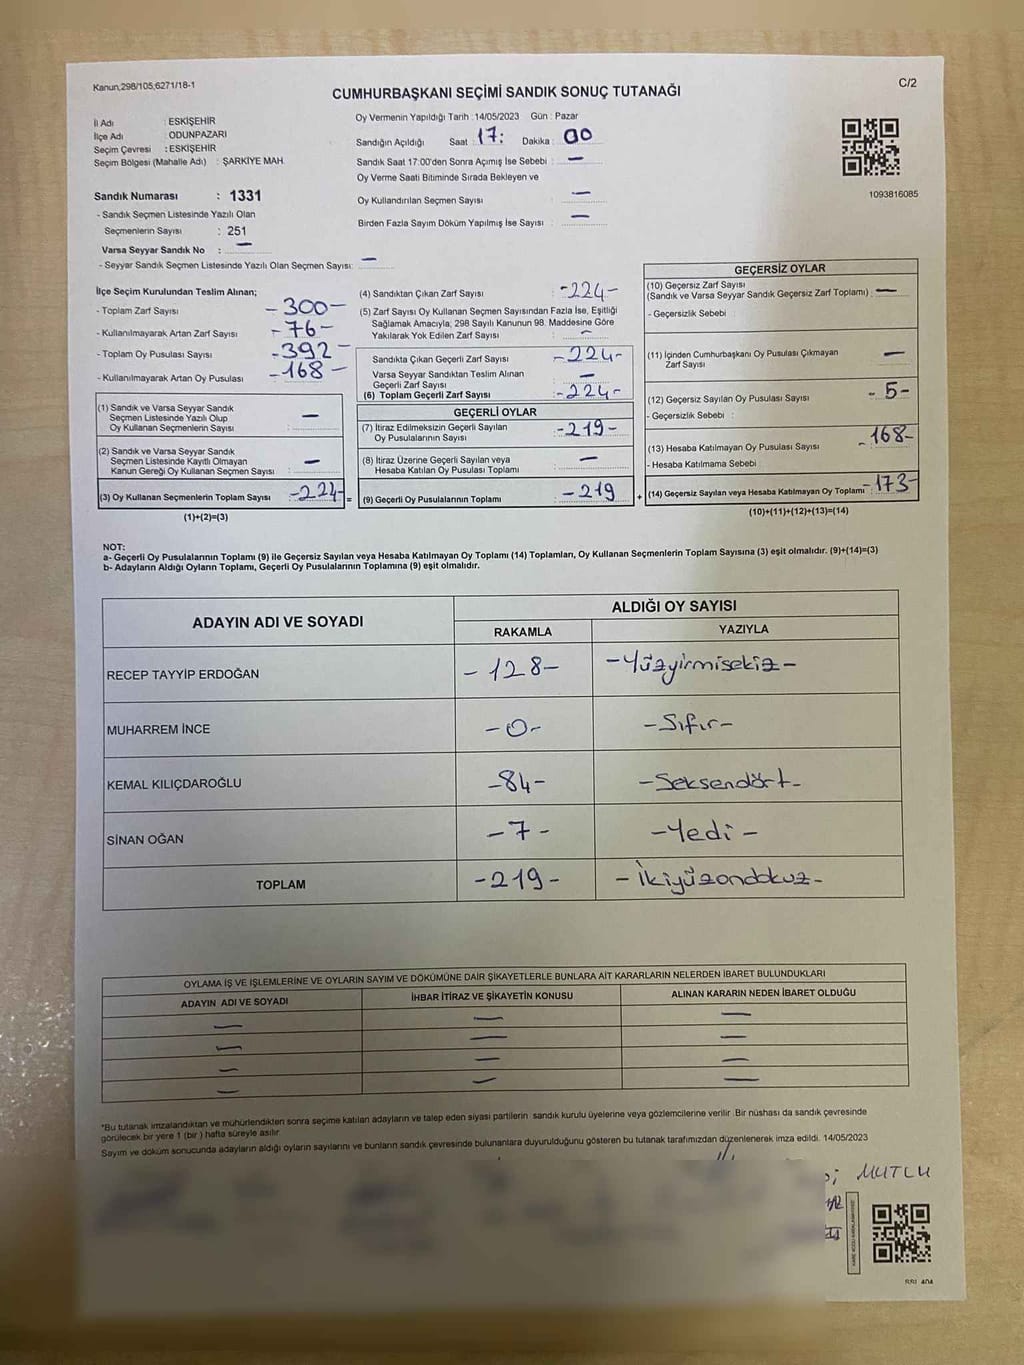 Kanun,298/105,6271/18-1
C/2
CUMHURBAŞKANI SEÇİMİ SANDIK SONUÇ TUTANAĞI
İl Adı : ESKİŞEHİR
İlçe Adı : ODUNPAZARI
Seçim Çevresi : ESKİŞEHİR
Seçim Bölgesi (Mahalle Adı) : ŞARKİYE MAH.
Sandık Numarası : 1331
- Sandık Seçmen Listesinde Yazılı Olan
Seçmenlerin Sayısı : 251
Varsa Seyyar Sandık No : —
- Seyyar Sandık Seçmen Listesinde Yazılı Olan Seçmen Sayısı: —
Oy Vermenin Yapıldığı Tarih : 14/05/2023 Gün : Pazar
Sandığın Açıldığı Saat : 17: Dakika : 00
Sandık Saat 17:00'den Sonra Açımış İse Sebebi : —
Oy Verme Saati Bitiminde Sırada Bekleyen ve
Oy Kullandırılan Seçmen Sayısı : —
Birden Fazla Sayım Döküm Yapılmış İse Sayısı : —
1093816085
İlçe Seçim Kurulundan Teslim Alınan;
- Toplam Zarf Sayısı : -300-
- Kullanılmayarak Artan Zarf Sayısı : -76-
- Toplam Oy Pusulası Sayısı : -392-
- Kullanılmayarak Artan Oy Pusulası : -168-
(1) Sandık ve Varsa Seyyar Sandık
Seçmen Listesinde Yazılı Olup
Oy Kullanan Seçmenlerin Sayısı : —
(2) Sandık ve Varsa Seyyar Sandık
Seçmen Listesinde Kayıtlı Olmayan
Kanun Gereği Oy Kullanan Seçmen Sayısı : —
(3) Oy Kullanan Seçmenlerin Toplam Sayısı : -224- =
(1)+(2)=(3)
(4) Sandıktan Çıkan Zarf Sayısı : -224-
(5) Zarf Sayısı Oy Kullanan Seçmen Sayısından Fazla İse, Eşitliği
Sağlamak Amacıyla; 298 Sayılı Kanunun 98. Maddesine Göre
Yakılarak Yok Edilen Zarf Sayısı : —
Sandıkta Çıkan Geçerli Zarf Sayısı : -224-
Varsa Seyyar Sandıktan Teslim Alınan
Geçerli Zarf Sayısı : —
(6) Toplam Geçerli Zarf Sayısı : -224-
GEÇERLİ OYLAR
(7) İtiraz Edilmeksizin Geçerli Sayılan
Oy Pusulalarının Sayısı : -219-
(8) İtiraz Üzerine Geçerli Sayılan veya
Hesaba Katılan Oy Pusulası Toplamı : —
(9) Geçerli Oy Pusulalarının Toplamı : -219 +
GEÇERSİZ OYLAR
(10) Geçersiz Zarf Sayısı
(Sandık ve Varsa Seyyar Sandık Geçersiz Zarf Toplamı) : —
- Geçersizlik Sebebi :
(11) İçinden Cumhurbaşkanı Oy Pusulası Çıkmayan
Zarf Sayısı : —
(12) Geçersiz Sayılan Oy Pusulası Sayısı : -5-
- Geçersizlik Sebebi :
(13) Hesaba Katılmayan Oy Pusulası Sayısı : -168-
- Hesaba Katılmama Sebebi
(14) Geçersiz Sayılan veya Hesaba Katılmayan Oy Toplamı : -173-
(10)+(11)+(12)+(13)=(14)
NOT:
a- Geçerli Oy Pusulalarının Toplamı (9) ile Geçersiz Sayılan veya Hesaba Katılmayan Oy Toplamı (14) Toplamları, Oy Kullanan Seçmenlerin Toplam Sayısına (3) eşit olmalıdır. (9)+(14)=(3)
b- Adayların Aldığı Oyların Toplamı, Geçerli Oy Pusulalarının Toplamına (9) eşit olmalıdır.
ADAYIN ADI VE SOYADI
ALDIĞI OY SAYISI
RAKAMLA YAZIYLA
RECEP TAYYİP ERDOĞAN -128- -Yüzyirmisekiz-
MUHARREM İNCE -0- -Sıfır-
KEMAL KILIÇDAROĞLU -84- -Seksendört-
SİNAN OĞAN -7- -Yedi-
TOPLAM -219- -İkiyüzondokuz-
OYLAMA İŞ VE İŞLEMLERİNE VE OYLARIN SAYIM VE DÖKÜMÜNE DAİR ŞİKAYETLERLE BUNLARA AİT KARARLARIN NELERDEN İBARET BULUNDUKLARI
ADAYIN ADI VE SOYADI İHBAR İTİRAZ VE ŞİKAYETİN KONUSU ALINAN KARARIN NEDEN İBARET OLDUĞU
— — —
— — —
— — —
— — —
*Bu tutanak imzalandıktan ve mühürlendikten sonra seçime katılan adayların ve talep eden siyasi partilerin sandık kurulu üyelerine veya gözlemcilerine verilir .Bir nüshası da sandık çevresinde
görülecek bir yere 1 (bir ) hafta süreyle asılır.
Sayım ve döküm sonucunda adayların aldığı oyların sayılarını ve bunların sandık çevresinde bulunanlara duyurulduğunu gösteren bu tutanak tarafımızdan düzenlenerek imza edildi. 14/05/2023
MUTLU